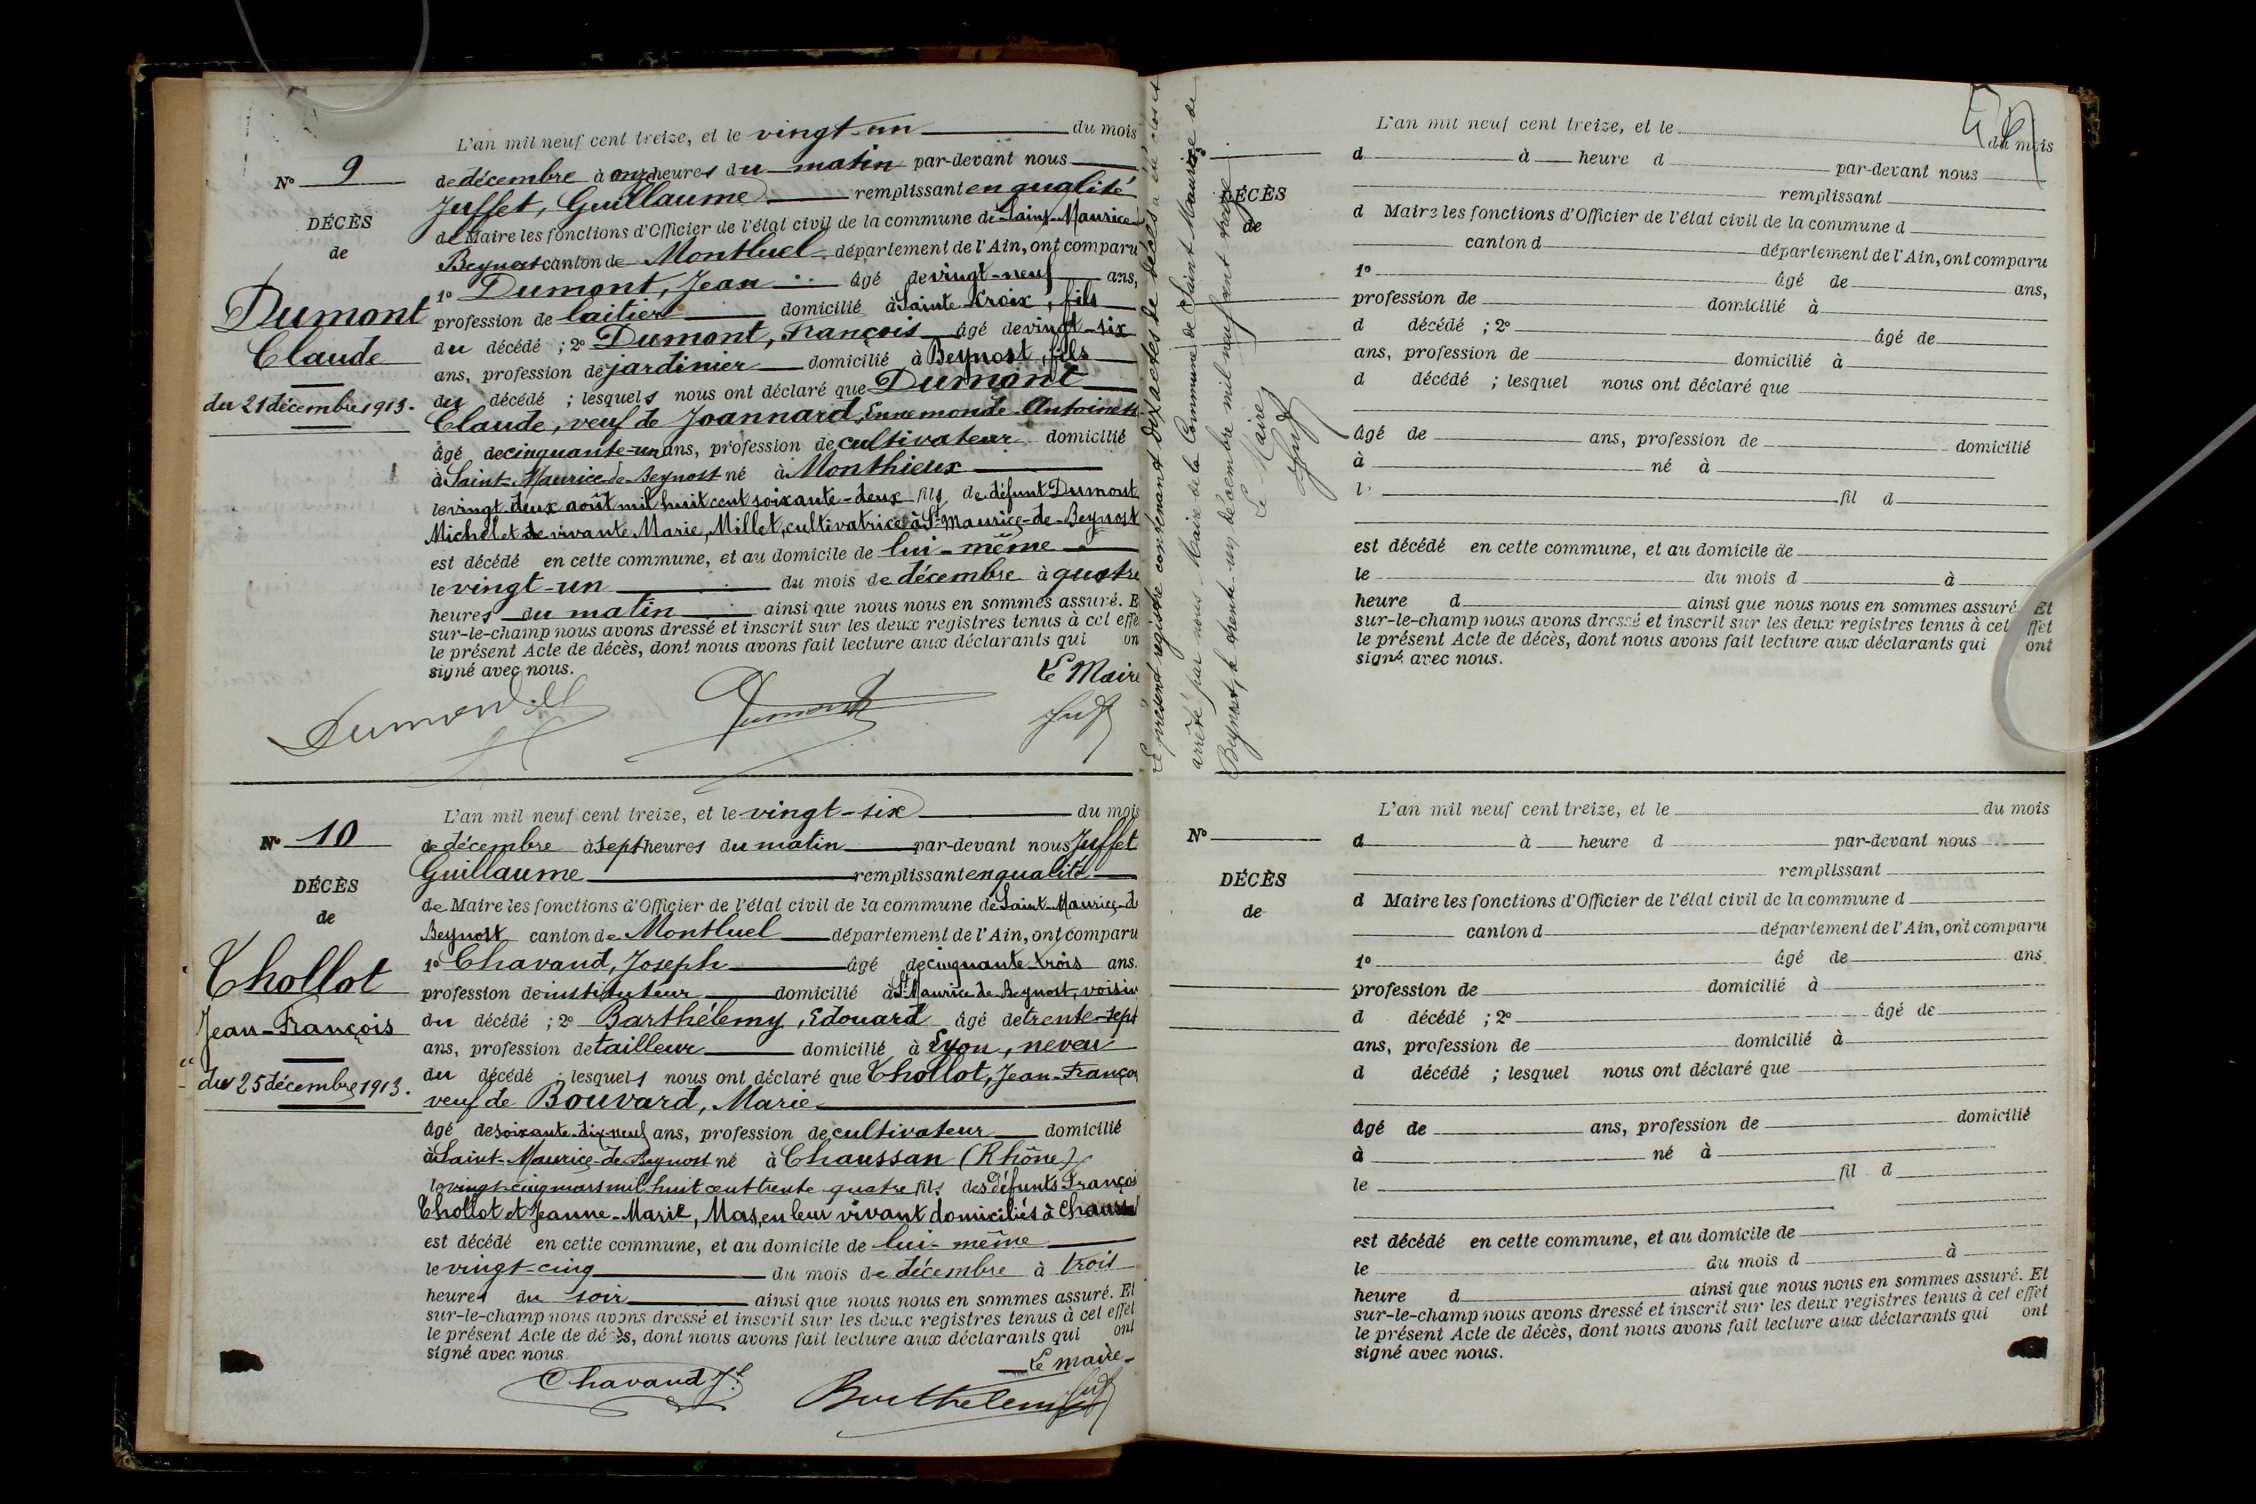 N° 9
DÉCÈS
de
Dumont
Claude
du 21 décembre 1913.
L'an mil neuf cent treize, et le vingt-un du mois
de décembre à onze heures du matin par-devant nous
Juffet, Guillaume remplissant en qualité
de Maire les fonctions d'Officier de l'état civil de la commune de Saint-Maurice-
Beynost canton de Montluel département de l'Ain, ont comparu
1° Dumont, Jean âgé de vingt-neuf ans,
profession de laitier domicilié à Sainte-Croix, fils
du décédé ; 2° Dumont, François âgé de vingt-six
ans, profession de jardinier domicilié à Beynost, fils
du décédé ; lesquels nous ont déclaré que Dumont
Claude, veuf de Joannard, Ennemonde-Antoinette
âgé de cinquante-un ans, profession de cultivateur domicilié
à Saint-Maurice-de-Beynost né à Monthieux
le vingt-deux août mil huit cent soixante-deux fils de défunt Dumont,
Michel et de vivante Marie, Millet, cultivatrice à St-Maurice-de-Beynost
est décédé en cette commune, et au domicile de lui-même
le vingt-un du mois de décembre à quatre
heures du matin ainsi que nous nous en sommes assuré. E
sur-le-champ nous avons dressé et inscrit sur les deux registres tenus à cet effe
le présent Acte de décès, dont nous avons fait lecture aux déclarants qui on
signé avec nous.
Le Maire
Dumont
Juffet
N° 10
DÉCÈS
de
Thollot
Jean-François
du 25 décembre 1913.
L'an mil neuf cent treize, et le vingt-six du mois
de décembre à sept heures du matin par-devant nous Juffet
Guillaume remplissant en qualité
de Maire les fonctions d'Officier de l'état civil de la commune de Saint-Maurice-d
Beynost canton de Montluel département de l'Ain, ont comparu
1° Chavand, Joseph âgé de cinquante-trois ans.
profession de instituteur domicilié à St-Maurice-de-Beynost, voisin
du décédé ; 2° Barthélemy, Edouard âgé de trente-sept
ans, profession de tailleur domicilié à Lyon, neveu
du décédé ; lesquels nous ont déclaré que Thollot, Jean-François
veuf de Bouvard, Marie
âgé de soixante-dix-neuf ans, profession de cultivateur domicilié
à Saint-Maurice-de-Beynost né à Chaussan (Rhône)
le vingt-cinq mars mil huit cent trente quatre fils des défunts François
Thollot et Jeanne-Marie, Mas, en leur vivant domiciliés à Chaussan
est décédé en cette commune, et au domicile de lui-même
le vingt-cinq du mois de décembre à trois
heures du soir ainsi que nous nous en sommes assuré. Et
sur-le-champ nous avons dressé et inscrit sur les deux registres tenus à cet effet
le présent Acte de décès, dont nous avons fait lecture aux déclarants qui ont
signé avec nous.
Le maire
Chavand Jh
Barthelemy
Le présent registre contenant dix actes de décès a été clos et
arrêté par nous Maire de la Commune de Saint Maurice de
Beynost, le trente-un décembre mil neuf cent treize
Le Maire
Juffet
DÉCÈS
de
L'an mil neuf cent treize, et le du mois
d à heure d par-devant nous
remplissant
d Maire les fonctions d'Officier de l'état civil de la commune d
canton d département de l'Ain, ont comparu
1° âgé de ans,
profession de domicilié à
d décédé ; 2° âgé de
ans, profession de domicilié à
d décédé ; lesquel nous ont déclaré que
âgé de ans, profession de domicilié
à né à
l fil d
est décédé en cette commune, et au domicile de
le du mois d à
heure d ainsi que nous nous en sommes assuré. Et
sur-le-champ nous avons dressé et inscrit sur les deux registres tenus à cet effet
le présent Acte de décès, dont nous avons fait lecture aux déclarants qui ont
signé avec nous.
N°
DÉCÈS
de
L'an mil neuf cent treize, et le du mois
d à heure d par-devant nous
remplissant
d Maire les fonctions d'Officier de l'état civil de la commune d
canton d département de l'Ain, ont comparu
1° âgé de ans
profession de domicilié à
d décédé ; 2° âgé de
ans, profession de domicilié à
d décédé ; lesquel nous ont déclaré que
âgé de ans, profession de domicilié
à né à
le fil d
est décédé en cette commune, et au domicile de
le du mois d à
heure d ainsi que nous nous en sommes assuré. Et
sur-le-champ nous avons dressé et inscrit sur les deux registres tenus à cet effet
le présent Acte de décès, dont nous avons fait lecture aux déclarants qui ont
signé avec nous.